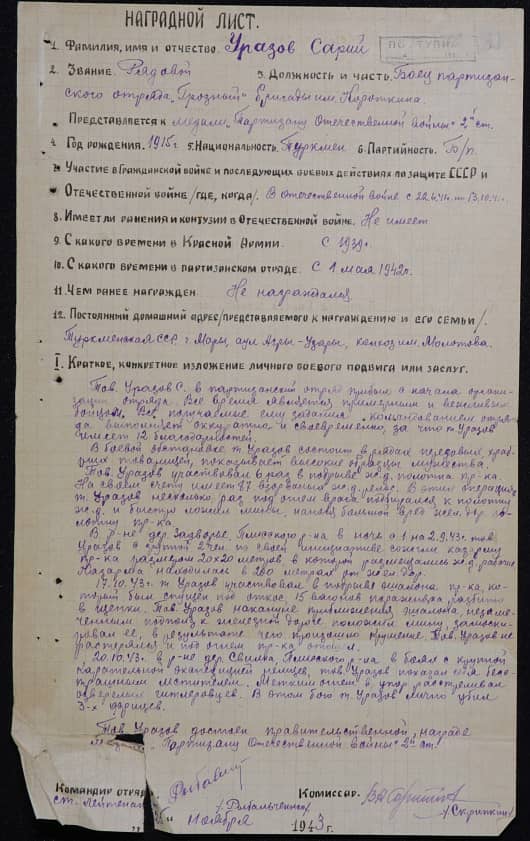 НАГРАДНОЙ ЛИСТ.
1. Фамилия, имя и отчество. Уразов Сарий
ПОСТУПИЛ
2. Звание. Рядовой 3. Должность и часть. Боец партизан-
ского отряда „Грозный" бригады им. Короткина.
Представляется к медали „Партизану Отечественной войны" 2й ст.
4. Год рождения. 1915г. 5. Национальность. Туркмен 6. Партийность. Б/п.
7. Участие в Гражданской войне и последующих боевых действиях по защите СССР и
Отечественной войне /где, когда/. В Отечественной войне с 22.6.41г.
8. Имеет ли ранения и контузии в Отечественной войне. Не имеет.
9. С какого времени в Красной Армии. С 1939г.
10. С какого времени в партизанском отряде. С 1 мая 1942г.
11. Чем ранее награжден. Не награждался
12. Постоянный домашний адрес /представляемого к награждению и его семьи/.
Туркменская ССР. г. Мары, аул Агры-Узары, колхоз им. Молотова.
I. Краткое, конкретное изложение личного боевого подвига или заслуг.
Тов. Уразов С. в партизанский отряд прибыл с начала органи-
зации отряда. Все время является примерным и вежливым
бойцом. Все получаемые ему задания командованием отря-
да выполняет аккуратно и своевременно, за что т. Уразов
имеет 12 благодарностей.
В боевой обстановке т. Уразов состоит в рядах передовых, храб-
рых товарищей, показывает высокие образцы мужества.
Тов. Уразов участвовал 6 раз в подрыве ж.д. полотна пр-ка.
На своем счету имеет 27 взорваных ж.д. рельс. В этих операциях
т. Уразов несколько раз под огнем врага подбирался к полотну
ж.д. и быстро ложил мины, нанося большой вред жел. дор.
пр-ка
В р-не дер. Задворье, р-на в ночь с 1 на 2.9.43г. тов.
Уразов с группой 2 чел. по своей инициативе сожгли казарму
пр-ка размером 20х20 метров в которой размещались ж.д. рабочие
Казарма находилась в 280 метрах от жел. дор.
17.10.43г. т. Уразов участвовал в подрыве эшалона пр-ка, ко-
торый был спущен под откос, 15 вагонов порожняка разбито
в щепки. Тов. Уразов накануне приближения эшалона, незаме-
ченным подполз к железной дороге положил мину, замаски-
ровал ее, в результате чего произошло крушение. Тов. Уразов не
растерялся и под огнем пр-ка отошел.
20.10.43г. в р-не дер. р-на в боях с крупной
карательной экспедицией немцев, тов. Уразов показал себя бес-
страшным мстителем. Метким огнем в упор расстреливал
озверелых гитлеровцев. В этом бою т. Уразов лично убил
3-х фрицев.
Тов. Уразов достоен правительственной награде
Партизану Отечественной войны" 2й ст.
Командир отряда Комиссар.
ст. лейтенант
Ноября 1943г.